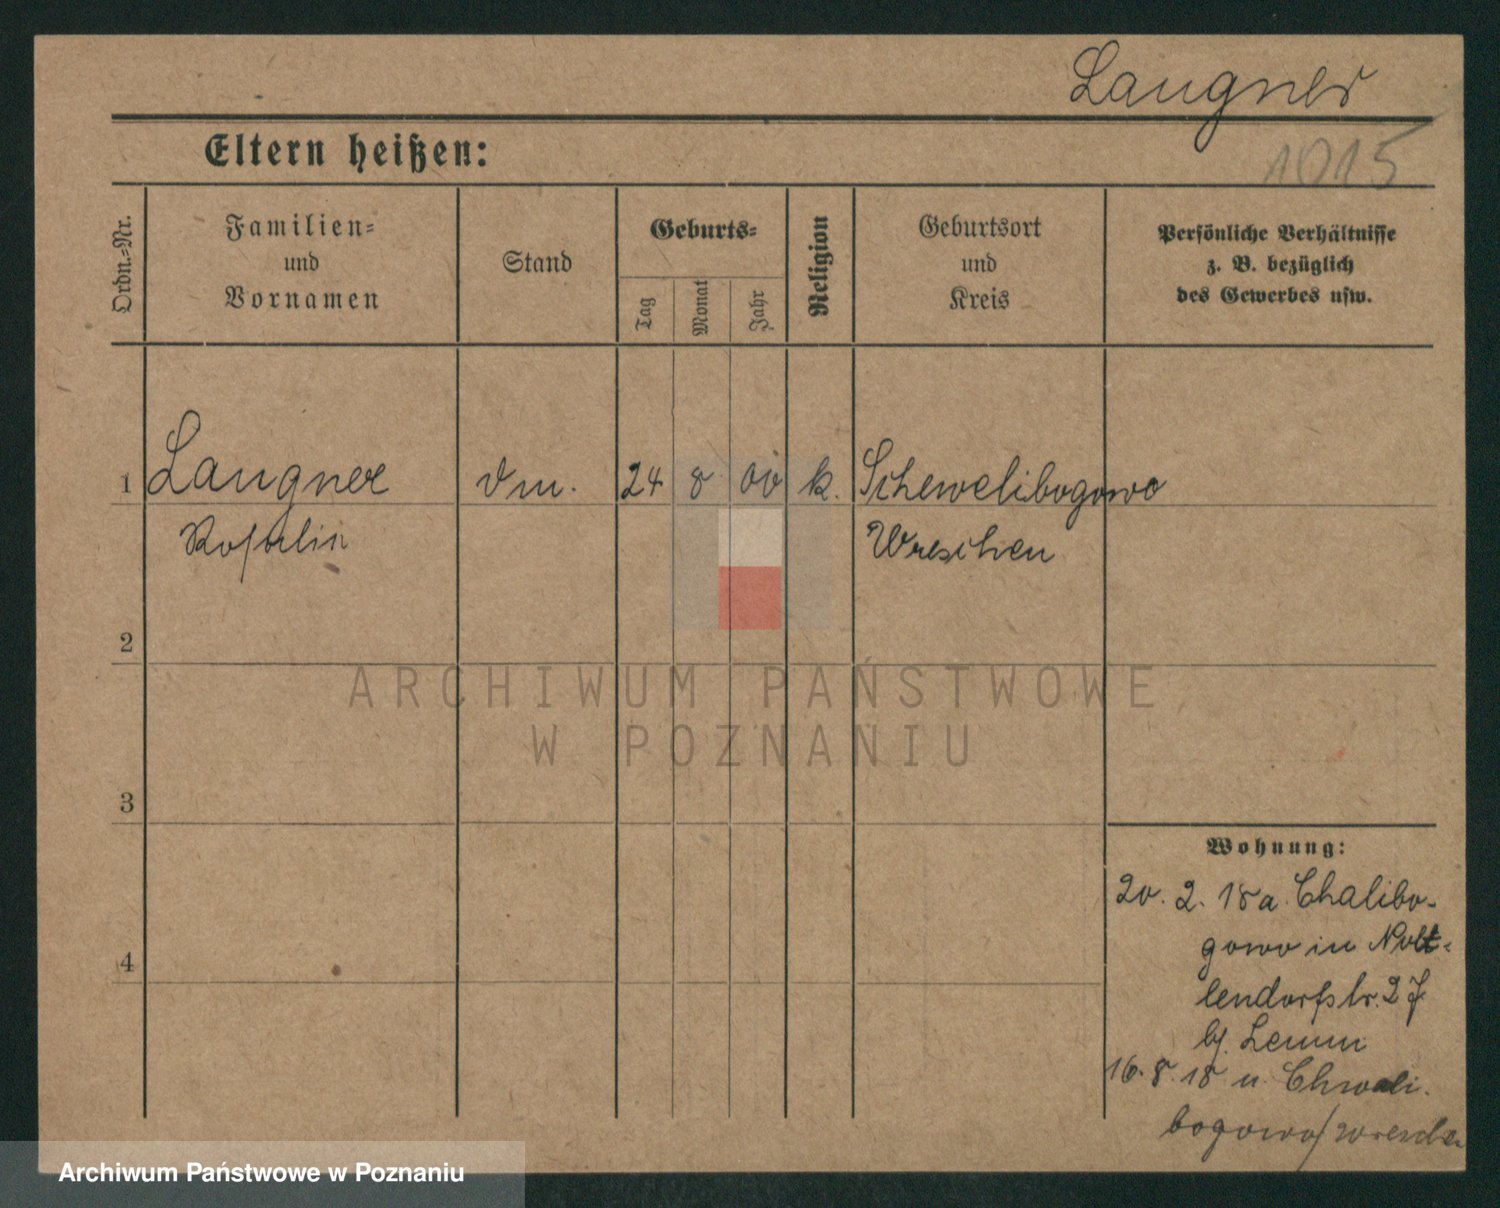 Langner
1015
Eltern heißen:
Ordn.-Nr.
Familien-
und
Vornamen
Stand
Geburts-
Tag
Monat
Jahr
Religion
Geburtsort
und
Kreis
Persönliche Verhältnisse
z. B. bezüglich
des Gewerbes usw.
1 Langner Dm. 24 8 00 k. Schewelibogowo
Rosalie Wreschen
2
3
4
Wohnung:
20. 2. 18 a. Chalibo-
gowo in
lendorfstr. 27
b/. Lemm
16. 8. 18 n. Chwali-
bogowo/Wreschen
ARCHIWUM PAŃSTWOWE
W POZNANIU
Archiwum Państwowe w Poznaniu